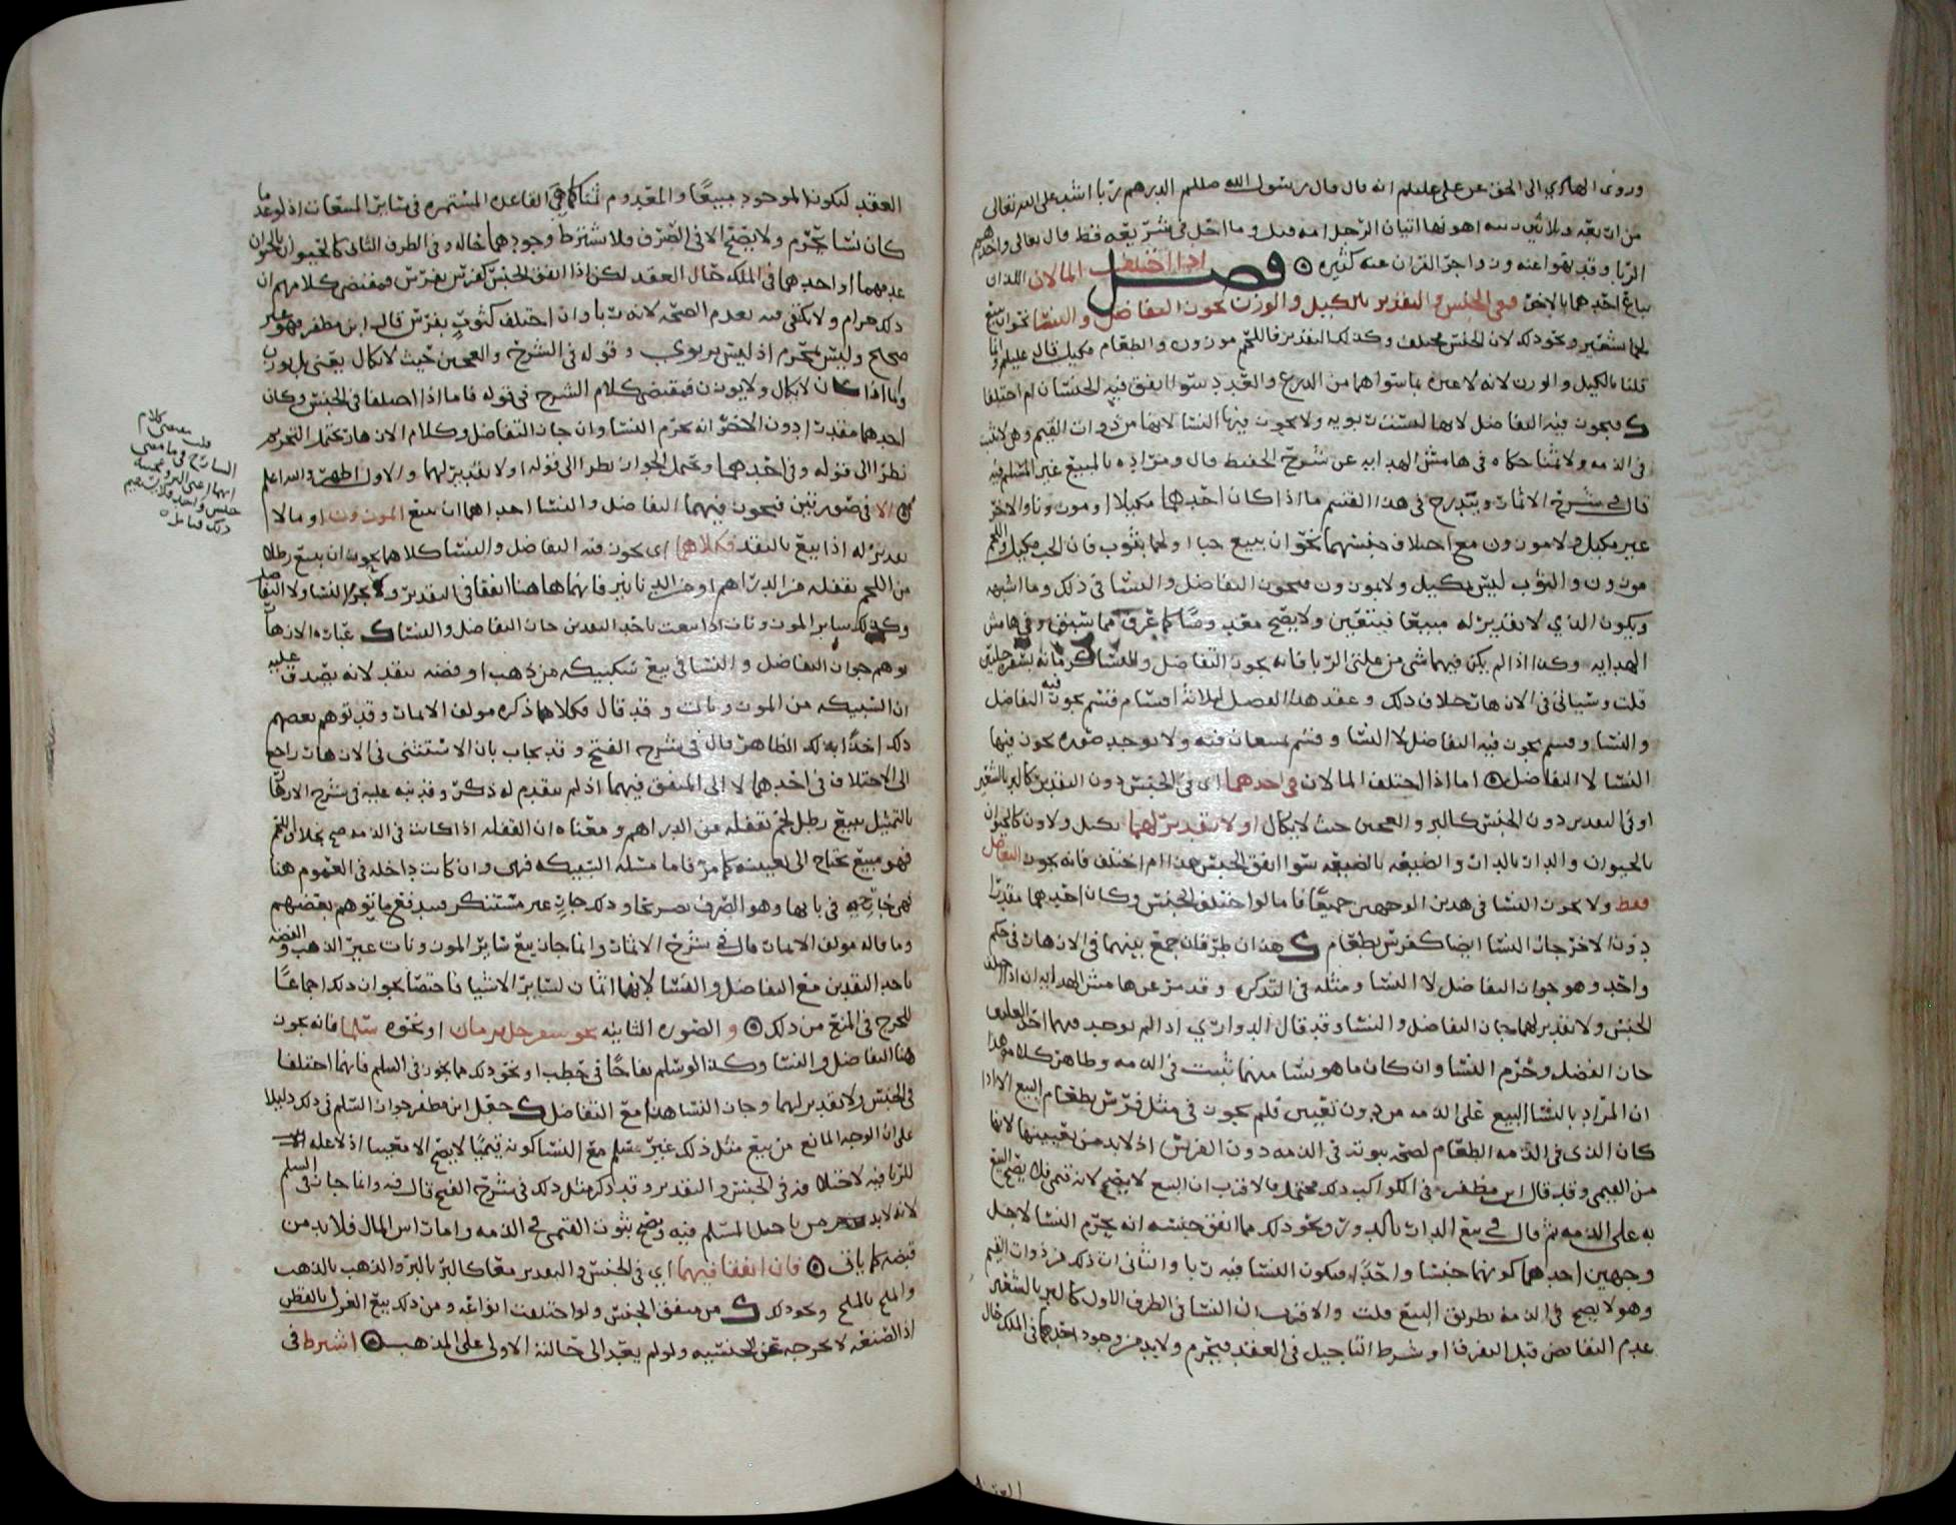 وروى الهادي الى الحق عن علي عليلم انه قال قال رسول الله صللم الدرهم ربا اشد على الله تعالى
من اربعه وثلاثين زنيه اهونها اتيان الرجل امه وما احل في شربعه قط قال تعالى واخذهم
الربا وقد نهوا عنه وزواجر القران عنه كثيره ٥ فصل اذا اختلف المالان اللذان
يباع احدهما بالاخر ففي الجنس والتقدير بالكيل والوزن يجوز التفاضل والنسا نحو ان يبيع
لحما بشعير ونحو ذلك لان الجنس مختلف وكذلك التقدير فاللحم موزون والطعام مكيل قال عليلم وانما
قلنا بالكيل والوزن لانه لا عبره بما سواهما من الذرع والعدد سوا اتفق فيه الجنسان ام اختلفا
فيجوز فيه التفاضل لانها ليست ربويه ولا يجوز فيها النسا لانها من ذوات القيم وهي لا تثبت
في الذمه ولا ثمنا حكاه في هامش الهدايه عن شرح الحفيظ قال ومراده بالمبيع غير المسلم فيه
قال في شرح الاثمار ويندرج في هذا القسم ما اذا كان احدهما مكيلا او موزونا والاخر
غير مكيل ولا موزون مع اختلاف جنسهما نحو ان يبيع حبا او لحما بثوب فان الحب مكيل واللحم
موزون والثوب ليس بمكيل ولا موزون فيجوز التفاضل والنسا في ذلك وما اشبهه
ويكون الذي لا تقدير له مبيعا فيتعين ولا يصح معدوما كما عرف مما سبق وفي هامش
الهدايه وكذا اذا لم يكن فيهما شي من علتي الربا فانه يجوز التفاضل والنسا كرمانه بسفرجلتين
قلت وسياتي في الازهار خلاف ذلك وعقد هذا الفصل ثلاثة اقسام قسم يجوز فيه التفاضل
والنسا وقسم يجوز فيه التفاضل لا النسا وقسم يمنعان فيه ولا توجد صوره يجوز فيها
النسا لا التفاضل ٥ اما اذا اختلف المالان في احدهما اي في الجنس دون التقدير كالبر بالشعير
او في التقدير دون الجنس كالبر والعجين حيث لا يكال او لا تقدير لهما بكيل ولا وزن كالحيوان
بالحيوان والدار بالدار والضيعه بالضيعه سوا اتفق الجنس هنا ام اختلف فانه يجوز التفاضل
فقط ولا يجوز النسا في هذين الوجهين جميعا فاما لو اختلف الجنس وكان احدهما مقدرا
دون الاخر جاز النسا ايضا كفرس بطعام هذان طرفان جمع بينهما في الازهار في حكم
واحد وهو جواز التفاضل لا النسا ومثله في التذكره وقد مر عن هامش الهدايه ان اذا اختلف
الجنس ولا تقدير لهما جاز التفاضل والنسا وقد قال الدواري اذا لم توجد فيهما احد العلتين
جاز الفضل وحرم النسا وان كان ما هو نسا منهما يثبت في الذمه وظاهر كلامه هذا
ان المراد بالنسا البيع على الذمه من دون تعيين فلم يجوز في مثل فرس بطعام البيع الا اذا
كان الذي في الذمه الطعام لصحه ثبوته في الذمه دون الفرس اذ لا بد من تعيينها لانها
من القيمي وقد قال ابن مظفر في الكواكب ذلك محتمل فالاقرب ان البيع لا يصح لانه قيمي فلا يصح البيع
به على الذمه ثم قال في بيع الدار بالدور ونحو ذلك مما اتفق جنسه انه يحرم النسا لاجل
وجهين احدهما كونهما جنسا واحدا فيكون النسا فيه ربا والثاني ان ذلك من ذوات القيم
وهو لا يصح في الذمه بطريق البيع قلت والاقرب ان النسا في الطرف الاول كالبر بالشعير
عدم التقابض قبل التفرق او شرط التاجيل في العقد فيحرم ولا بد من وجود احدهما في الملك حال
العقد
العقد ليكون الموجود مبيعا والمعدوم ثمنا كما هي القاعده المستمره في سائر المبيعات اذ لو عدما
كان نسا يحرم ولا يصح الا في الصرف فلا يشترط وجودهما حاله وفي الطرف الثاني كالحيوان بالحيوان
عدمهما او احدهما في الملك حال العقد لكن اذا اتفق الجنس كفرس بفرس فمقتضى كلامهم ان
ذلك حرام ولا يكتفى فيه بعدم الصحه لانه ربا وان اختلف كثوب بفرس قال ابن مظفر فهو غير
صحيح وليس بمحرم اذ ليس بربوي وقوله في الشرح والعجين حيث لا يكال يعني بل يوزن
واما اذا كان لا يكال ولا يوزن فمقتضى كلام الشرح في قوله فاما اذا اختلفا في الجنس وكان
احدهما مقدرا دون الاخر انه يحرم النسا وان جاز التفاضل وكلام الازهار يحتمل التحريم
نظرا الى قوله وفي احدهما ويحتمل الجواز نظرا الى قوله او لا تقدير لهما والاول اظهر والله اعلم
الا في صورتين فيجوز فيهما التفاضل والنسا احداهما ان يبيع الموزون او ما لا
تقدير له اذا بيع بالنقد فكلاهما اي يجوز فيه التفاضل والنسا كلاهما نحو ان يبيع رطلا
من اللحم بقفله من الدراهم او من الدنانير فانهما هاهنا اتفقا في التقدير ولم يحرم النسا ولا التفاضل
وكذلك ساير الموزونات اذا بيعت باحد النقدين جاز التفاضل والنسا عبارة الازهار
توهم جواز التفاضل والنسا في بيع سبيكه من ذهب او فضه بنقد لانه يصدق عليه
ان السبيكه من الموزونات وقد قال فكلاهما ذكره مولف الاثمار وقد توهم بعضهم
ذلك اخذا بذلك الظاهر قال في شرح الفتح وقد يجاب بان الاستثنى في الازهار راجع
الى الاختلاف في احدهما لا الى المتفق فيهما اذ لم يتقدم له ذكر وقد نبه عليه في شرح الازهار
بالتمثيل ببيع رطل لحم بقفله من الدراهم ومعناه ان القفله اذا كانت في الذمه صح بخلاف اللحم
فهو مبيع يحتاج الى تعيينه كما مر فاما مسئلة السبيكه فهي وان كانت داخله في العموم هنا
فهي خارجه في بابها وهو الصرف تصريحا وذلك جار غير مستنكر فيدفع ما توهم بعضهم
وما قاله مولف الاثمار قال في شرح الاثمار وانما جاز بيع سائر الموزونات غير الذهب والفضه
باحد النقدين مع التفاضل والنسا لانهما اثمان لسائر الاشيا فاختصا بجواز ذلك اجماعا
للحرج في المنع من ذلك ٥ و الصوره الثانيه نحو سفرجل برمان او نحوه سلما فانه يجوز
هنا التفاضل والنسا وكذا لو سلم تفاحا في حطب او نحو ذلك مما يجوز في السلم فانهما اختلفا
في الجنس ولا تقدير لهما وجاز النسا هنا مع التفاضل جعل ابن مظفر جواز السلم في ذلك دليلا
على ان الوجه المانع من بيع مثل ذلك غير مسلم مع النسا كونه قيميا لا يصح الا معينا اذ لا عله
للربا فيه لاختلافه في الجنس والتقدير وقد ذكر مثل ذلك في شرح الفتح قال فيه وانما جاز في السلم
لانه لا بد من تاجيل المسلم فيه وصح ثبوت القيمي في الذمه واما راس المال فلا بد من
قبضه كما ياتي ٥ فان اتفقا فيهما اي في الجنس والتقدير معا كالبر بالبر والذهب بالذهب
والملح بالملح ونحو ذلك من متفق الجنس ولو اختلفت انواعه ومن ذلك بيع الغزل بالقطن
اذ الصنعه لا تخرجه عن الجنسيه ولو لم يعد الى حالته الاولى على المذهب ٥ اشترط في
قلت مقتضى كلام
الشارح فيما مضى
انهما اعني البر وعجينه
جنس واحد
ذلك فتامل